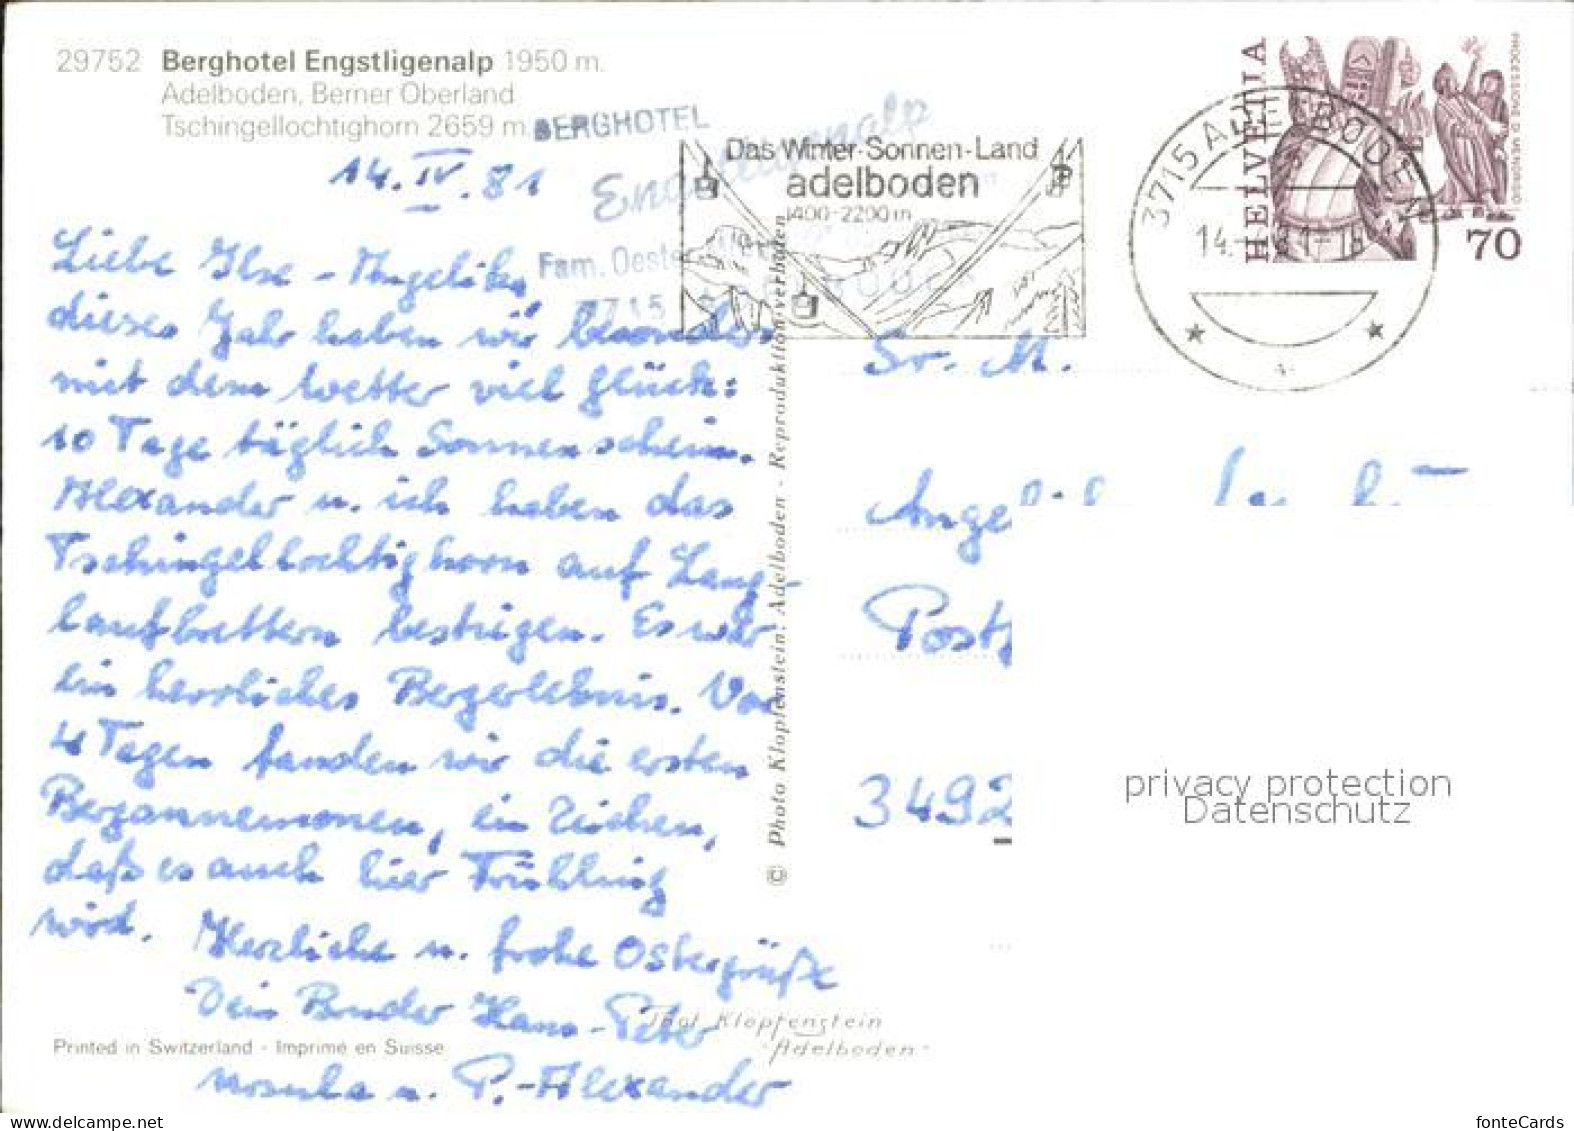 29752 Berghotel Engstligenalp 1950 m.
Adelboden, Berner Oberland
Tschingellochtighorn 2659 m.
BERGHOTEL
Engstligenalp
Fam. Oester
3715
14. IV. 81
Liebe Ilse - Angelika,
dieses Jahr haben wir besonders
mit dem Wetter viel Glück:
10 Tage täglich Sonnenschein.
Alexander u. ich haben das
Tschingellochtighorn auf Lang-
laufbrettern bestiegen. Es war
ein herrliches Bergerlebnis. Vor
4 Tagen fanden wir die ersten
Bergannemonen, ein Zeichen,
daß es auch hier Frühling
wird.
Herzliche u. frohe Ostergrüße
Dein Bruder Hans-Peter
Ursula u. P.-Alexander
Printed in Switzerland - Imprimé en Suisse
Klopfenstein
Adelboden
© Photo Klopfenstein, Adelboden - Reproduktion verboten
Das Winter-Sonnen-Land
adelboden
1400-2200 m
3715 ADELBODEN
14.
81-18
HELVETIA
70
PROCESSIONE DI MENDRISIO
Sr. M.
Ange
Post
3492
privacy protection
Datenschutz
fonteCards